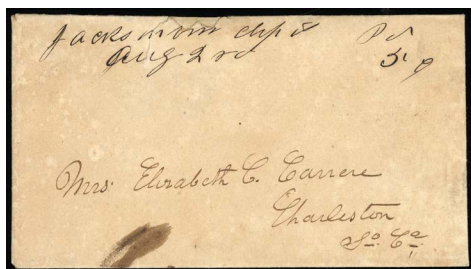 Jacksonville
Aug 2nd
Pd
5
Mrs. Elizabeth C. Carrere
Charleston
So. Ca.